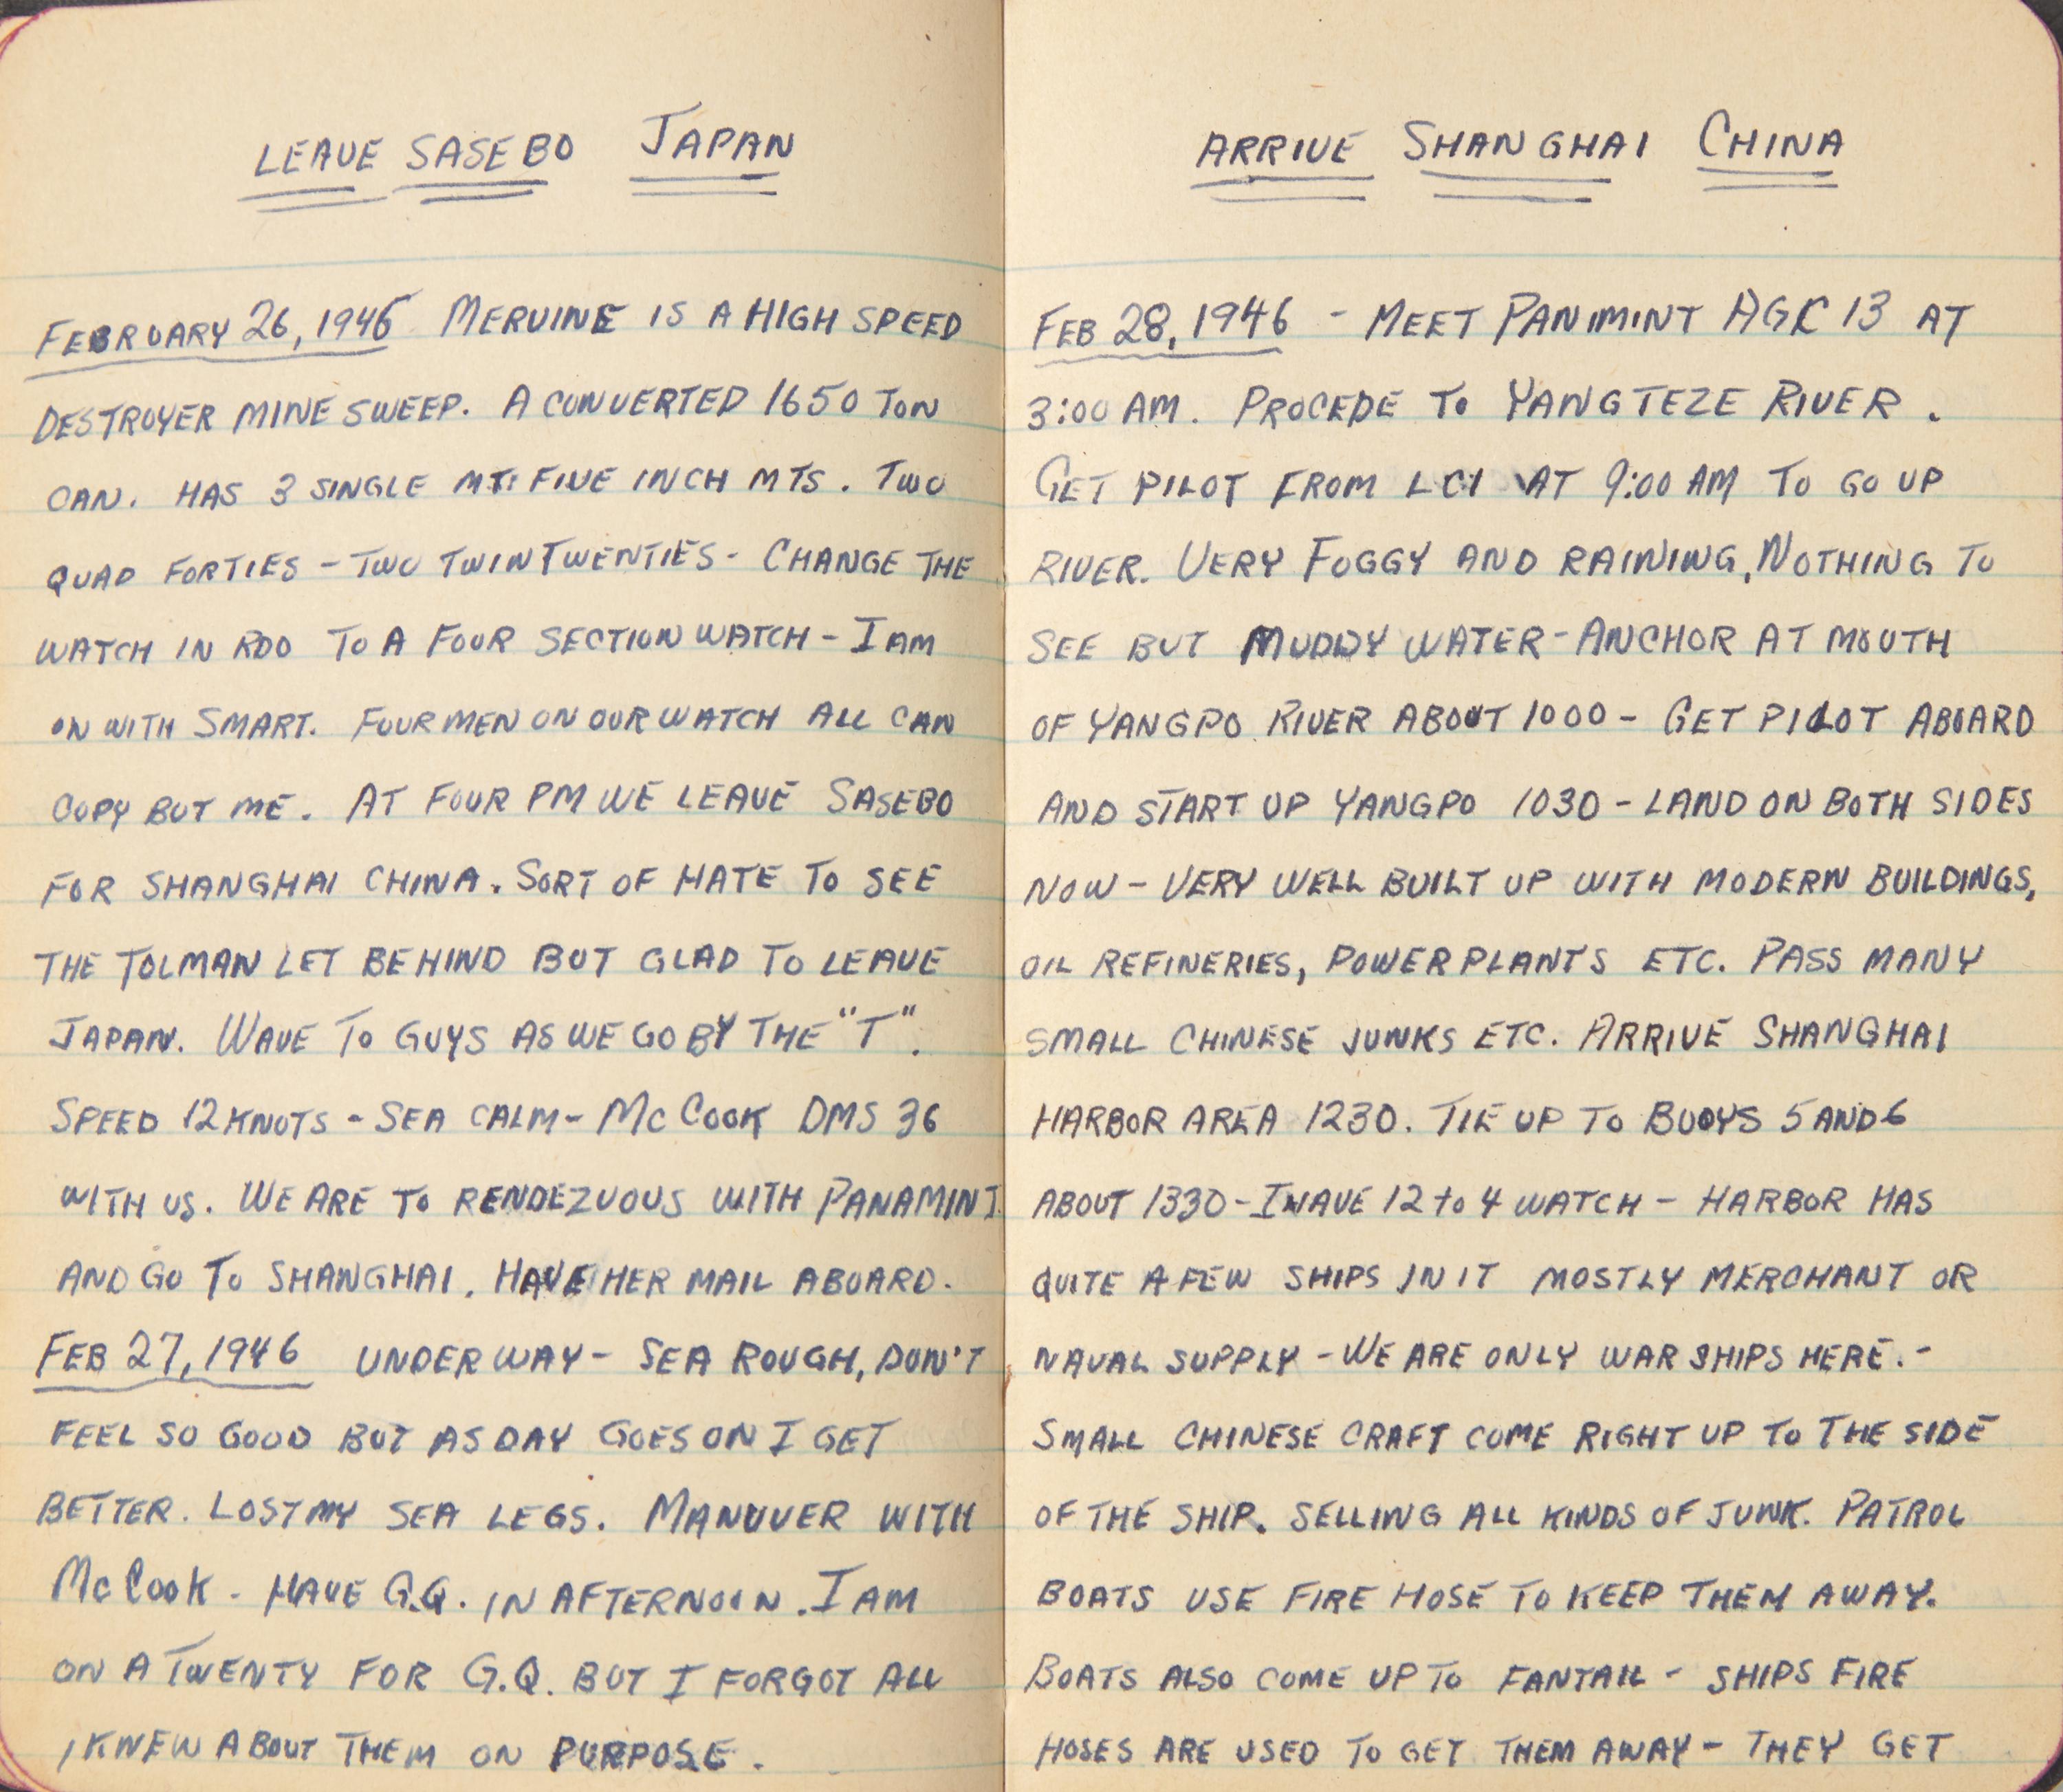 LEAVE SASEBO JAPAN
FEBRUARY 26, 1946 MERVINE IS A HIGH SPEED
DESTROYER MINE SWEEP. A CONVERTED 1650 TON
CAN. HAS 3 SINGLE MT: FIVE INCH MTS. TWO
QUAD FORTIES - TWO TWIN TWENTIES - CHANGE THE
WATCH IN RDO TO A FOUR SECTION WATCH - I AM
ON WITH SMART. FOUR MEN ON OUR WATCH ALL CAN
COPY BUT ME. AT FOUR PM WE LEAVE SASEBO
FOR SHANGHAI CHINA. SORT OF HATE TO SEE
THE TOLMAN LET BEHIND BUT GLAD TO LEAVE
JAPAN. WAVE TO GUYS AS WE GO BY THE "T".
SPEED 12 KNOTS - SEA CALM - MC COOK DMS 36
WITH US. WE ARE TO RENDEZVOUS WITH PANAMINT
AND GO TO SHANGHAI. HAVE HER MAIL ABOARD.
FEB 27, 1946 UNDER WAY - SEA ROUGH, DON'T
FEEL SO GOOD BUT AS DAY GOES ON I GET
BETTER. LOST MY SEA LEGS. MANUVER WITH
MC COOK - HAVE G.Q. IN AFTERNOON. I AM
ON A TWENTY FOR G.Q. BUT I FORGOT ALL
I KNEW ABOUT THEM ON PURPOSE.
ARRIVE SHANGHAI CHINA
FEB 28, 1946 - MEET PANIMINT AGC 13 AT
3:00 AM. PROCEDE TO YANGTEZE RIVER.
GET PILOT FROM LCI AT 9:00 AM TO GO UP
RIVER. VERY FOGGY AND RAINING, NOTHING TO
SEE BUT MUDDY WATER - ANCHOR AT MOUTH
OF YANGPO RIVER ABOUT 1000 - GET PILOT ABOARD
AND START UP YANGPO 1030 - LAND ON BOTH SIDES
NOW - VERY WELL BUILT UP WITH MODERN BUILDINGS,
OIL REFINERIES, POWER PLANTS ETC. PASS MANY
SMALL CHINESE JUNKS ETC. ARRIVE SHANGHAI
HARBOR AREA 1230. TIE UP TO BUOYS 5 AND 6
ABOUT 1330 - I HAVE 12 to 4 WATCH - HARBOR HAS
QUITE A FEW SHIPS IN IT MOSTLY MERCHANT OR
NAVAL SUPPLY - WE ARE ONLY WAR SHIPS HERE. -
SMALL CHINESE CRAFT COME RIGHT UP TO THE SIDE
OF THE SHIP. SELLING ALL KINDS OF JUNK. PATROL
BOATS USE FIRE HOSE TO KEEP THEM AWAY.
BOATS ALSO COME UP TO FANTAIL - SHIPS FIRE
HOSES ARE USED TO GET THEM AWAY - THEY GET